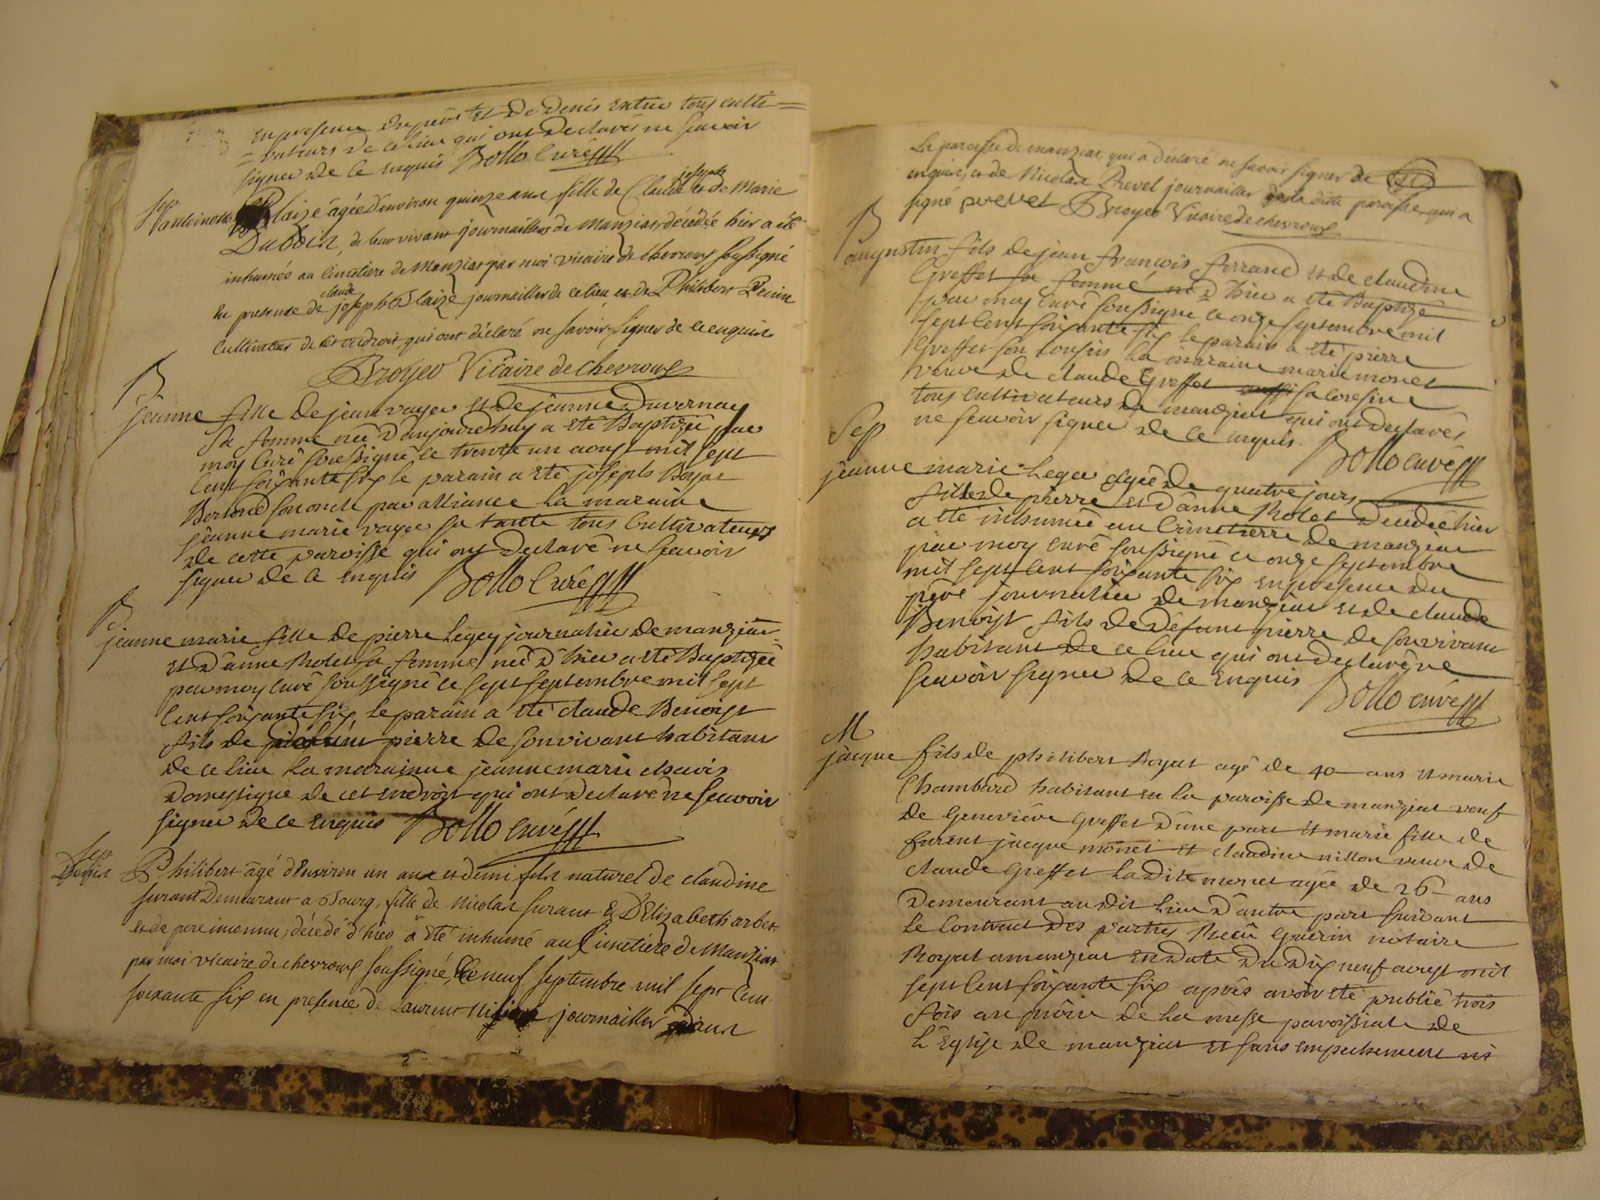 en presence du père et de Denis entre tous culti=
=vateurs de ce lieu qui ont declarés ne scavoir
signer de ce enquis Bollo curé
Sep
antoinette Blaize âgée d'environ quinze ans fille de Claude joseph et de Marie
Duboin, de leur vivant journailler de Manziat, décédée hier a été
inhumée au cimetière de Manziat par moi vicaire de chevroux soussigné
En presence de claude joseph Blaize journailler de ce lieu et de Philibert
cultivateur de cet endroit qui ont déclaré ne savoir signer de ce enquis
Broyer Vicaire de chevroux
B
jeanne fille de jean vayer et de jeanne Duvernay
sa femme née d'aujourdhuy a été Baptizée par
moy curé soussigné le trente un aoust mil sept
cent soixante six le parain a été joseph Boyat
son oncle par alliance la maraine
jeanne marie vayer sa tante tous cultivateurs
de cette paroisse qui ont declaré ne scavoir
signer de ce enquis Bollo curé
B
jeanne marie fille de pierre Legey journalier de manziat
et d'anne Rolet sa femme née d'hier a été Baptizée
par moy curé soussigné le sept septembre mil sept
cent soixante six, le parain a été claude Benoist
fils de pierre de son vivant habitant
de ce lieu la maraine jeanne marie
Domestique de cet endroit qui ont declaré ne scavoir
signer de ce enquis Bollo curé
Sep
Philibert âgé d'Environ un an et demi fils naturel de claudine
furant Demeurant a Bourg, fille de Nicolas furant & d'Elizabeth
et de pere inconnu, décédé d'hier a été inhumé au Cimetière de Manziat
par moi vicaire de chevroux soussigné, ce neuf septembre mil sept cent
soixante six en presence de Laurent journailler
La paroisse de manziat, qui a déclaré ne savoir signer de
enquis, et de Nicolas Prevel journailler de la dite paroisse, qui a
signé prevel Broyer Vicaire de chevroux
B
augustin fils de jean françois ferrand et de claudine
Greffet sa femme né d'hier a été Baptizé
par moy curé soussigné ce onze septembre mil
sept cent soixante six le parain a été pierre
Greffet son cousin la maraine marie monet
veuve de claude Greffet sa cousine
tous cultivateurs de manziat qui ont declarés
ne scavoir signer de ce enquis. Bollo curé
Sep
jeanne marie Legey agée de quatre jours
fille de pierre et d'anne Rolet Decedée hier
a été inhumée au cimetierre de manziat
par moy curé soussigné ce onze septembre
mil sept cent soixante six en presence du
père journalier de manziat et de claude
Benoist fils de defunt pierre de son vivant
habitant de ce lieu qui ont declaré ne
scavoir signer de ce enquis Bollo curé
M
jacque fils de philibert Boyat agé de 40 ans et marie
Chambard habitant en la paroisse de manziat veuf
de Geneviève Greffet d'une part et marie fille de
furent jacque monet et claudine nillon veuve de
claude Greffet La dite monet agée de 26 ans
demeurant au dit lieu d'autre part suivant
le contract des parties Reçû Guerin notaire
Royal a manziat en date du dix neuf aoust mil
sept cent soixante six apres avoir été publié trois
fois au prône de la messe paroissiale de
l'Eglise de manziat et sans empechement ni